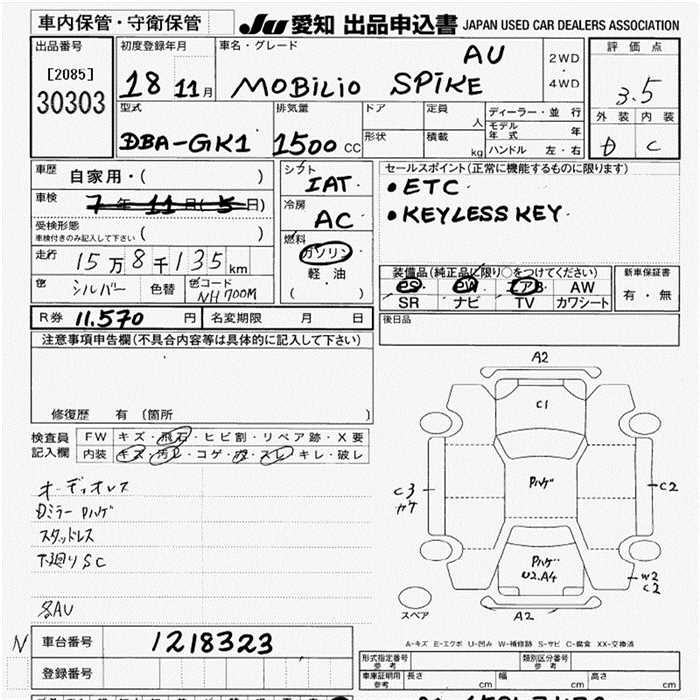 車内保管・守衛保管
JU 愛知 出品申込書 JAPAN USED CAR DEALERS ASSOCIATION
出品番号
[2085]
30303
初度登録年月
18 11月
車名・グレード
AU
MOBILIO SPIKE
2WD
・
4WD
評価点
3.5
外装 内装
D C
型式
DBA-GK1
排気量
1500 CC
ドア
形状
定員
人
積載
kg
ディーラー・並行
モデル年式 年
ハンドル 左・右
車歴 自家用・( )
車検 7年11月(5日)
受検形態
車検付きのみ記入して下さい ( )
走行 15万8千135km
色 シルバー 色替 色コード NH700M
シフト
IAT
冷房
AC
燃料
ガソリン
軽・油
( )
セールスポイント(正常に機能するものに限ります)
•ETC
•KEYLESS KEY
装備品(純正品に限り○をつけてください)
PS PW エアB AW
SR ナビ TV カワシート
新車保証書
有・無
R券 11,570 円 名変期限 月 日
後日品
注意事項申告欄(不具合内容等は具体的に記入して下さい)
修復歴 有 (箇所 )
検査員記入欄
FW キズ・飛石・ヒビ割・リペア跡・X要
内装 キズ・汚レ・コゲ・穴・スレ・キレ・破レ
オーディオレス
Dミラー Pハゲ
スタッドレス
下廻りSC
名AU
A2
C1
Pハゲ
C3
カケ
C2
Pハゲ
U2.A4
W2
C2
A2
スペア
A-キズ E-エクボ U-凹み W-補修跡 S-サビ C-腐食 XX-交換済
N 車台番号 1218323
登録番号
形式指定番号
参考
類別区分番号
参考
車庫証明用
参考
長さ cm 幅 cm 高さ cm